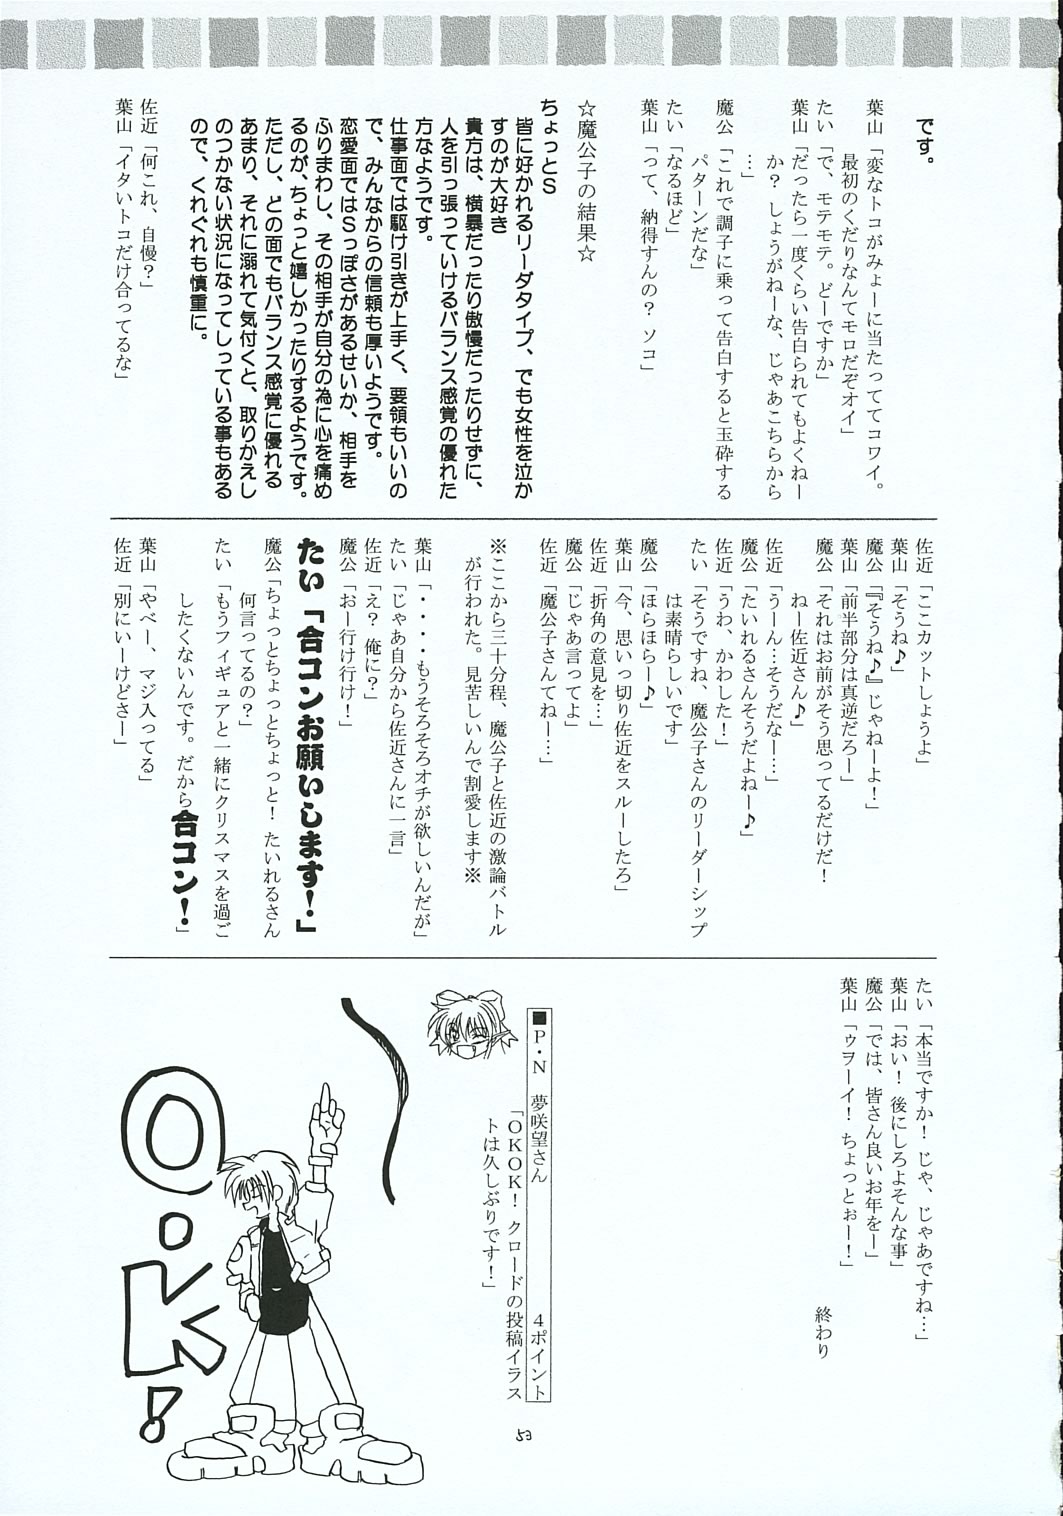 です。
葉山「変なトコがみょーに当たっててコワイ。
最初のくだりなんてモロだぞオイ」
たい「で、モテモテ。どーですか」
葉山「だったら一度くらい告白られてもよくねー
か？しょうがねーな、じゃあこちらから
…」
魔公「これで調子に乗って告白すると玉砕する
パターンだな」
たい「なるほど」
葉山「って、納得すんの？ソコ」
☆魔公子の結果☆
ちょっとS
皆に好かれるリーダタイプ、でも女性を泣か
すのが大好き
貴方は、横暴だったり傲慢だったりせずに、
人を引っ張っていけるバランス感覚の優れた
方なようです。
仕事面では駆け引きが上手く、要領もいいの
で、みんなからの信頼も厚いようです。
恋愛面ではSっぽさがあるせいか、相手を
ふりまわし、その相手が自分の為に心を痛め
るのが、ちょっと嬉しかったりするようです。
ただし、どの面でもバランス感覚に優れる
あまり、それに溺れて気付くと、取りかえし
のつかない状況になってしっている事もある
ので、くれぐれも慎重に。
佐近「何これ、自慢？」
葉山「イタいトコだけ合ってるな」
佐近「ここカットしょうよ」
葉山「そうね♪」
魔公「『そうね♪』じゃねーよ！」
葉山「前半部分は真逆だろー」
魔公「それはお前がそう思ってるだけだ！
ねー佐近さん♪」
佐近「うーん…そうだなー…」
魔公「たいれるさんそうだよねー♪」
佐近「うわ、かわした！」
たい「そうですね、魔公子さんのリーダーシップ
は素晴らしいです」
魔公「ほらほらー♪」
葉山「今、思いっ切り佐近をスルーしたろ」
佐近「折角の意見を…」
魔公「じゃあ言ってよ」
佐近「魔公子さんてねー…」
※ここから三十分程、魔公子と佐近の激論バトル
が行われた。見苦しいんで割愛します※
葉山「・・・・もうそろそろオチが欲しいんだが」
たい「じゃあ自分から佐近さんに一言」
佐近「え？俺に？」
魔公「おー行け行け！」
たい「合コンお願いします！」
魔公「ちょっとちょっとちょっと！たいれるさん
何言ってるの？」
たい「もうフィギュアと一緒にクリスマスを過ご
したくないんです。だから合コン！」
葉山「やべー、マジ入ってる」
佐近「別にいーけどさー」
たい「本当ですか！じゃ、じゃあですね…」
葉山「おい！後にしろよそんな事」
魔公「では、皆さん良いお年をー」
葉山「ゥヲーイ！ちょっとぉー！」
終わり
■P・N 夢咲望さん 4ポイント
「OKOK！クロードの投稿イラス
トは久しぶりです！」
O・K！
53